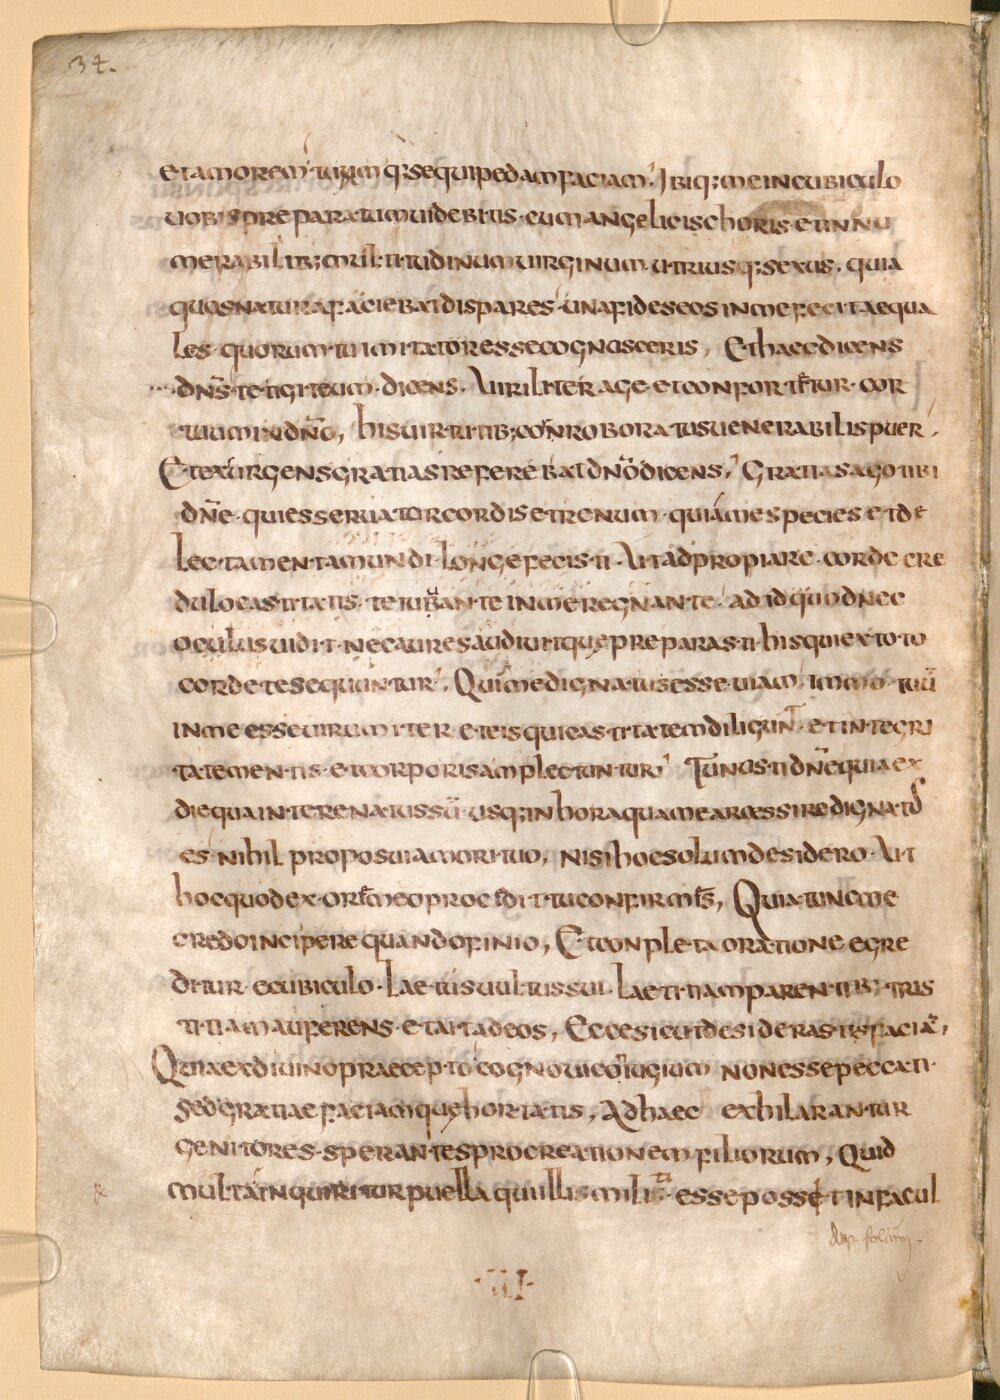 34.
et amorem tuum q; sequi pedam faciam. Ibiq; me in cubiculo
uobis preparatum uidebitis cum angelicis choris et innu
merabilib; multitudinum uirginum utriusq; sexus, quia
quos natura faciebat dispares una fides eos in me fecit aequa
les quorum tu imitatores se cognusceris, Et haec dicens
dns tetigit eum dicens. Uiriliter age et confortetur cor
tuum in dno, his uirtutib; conroboratus uenerabilis puer,
Et exurgens gratias referebat dno dicens. Gratias ago tibi
dne qui es seruator cordis et renum qui a me species et de
lectamenta mundi longe fecisti. Ut adpropiare corde cre
dulo castitatis te iubante in me regnante ad id quod nec
oculus uidit nec aures audiuit que preparasti his qui ex toto
corde te sequuntur. Qui me dignatus esse uiam immo tuu
in me esse uirum iter et eis qui castitatem diligunt et integri
tate mentis et corporis amplectuntur. Tu nosti dne quia ex
die qua in terena tus su usq; in hora qua me arcessire dignatus
es nihil proposui amori tuo, nisi hoc solum desidero. Ut
hoc quod ex ore meo procedit tu confirmes, Quia tunc me
credo incipere quando finio, Et conpleta oratione egre
ditur e cubiculo. Laetus uultus sui laetitiam parentib; tris
titiam auferens et ait ad eos, Ecce sicut desideras tis facia,
Quia ex diuino praecepto cognoui coniugium non esse peccati
sed gratiae faciam que hortatis, Ad haec exhilarantur
genitores sperantes procreationem filiorum, Quid
multa inquiritur puella qui illi similis esse posset in facul
folium
III